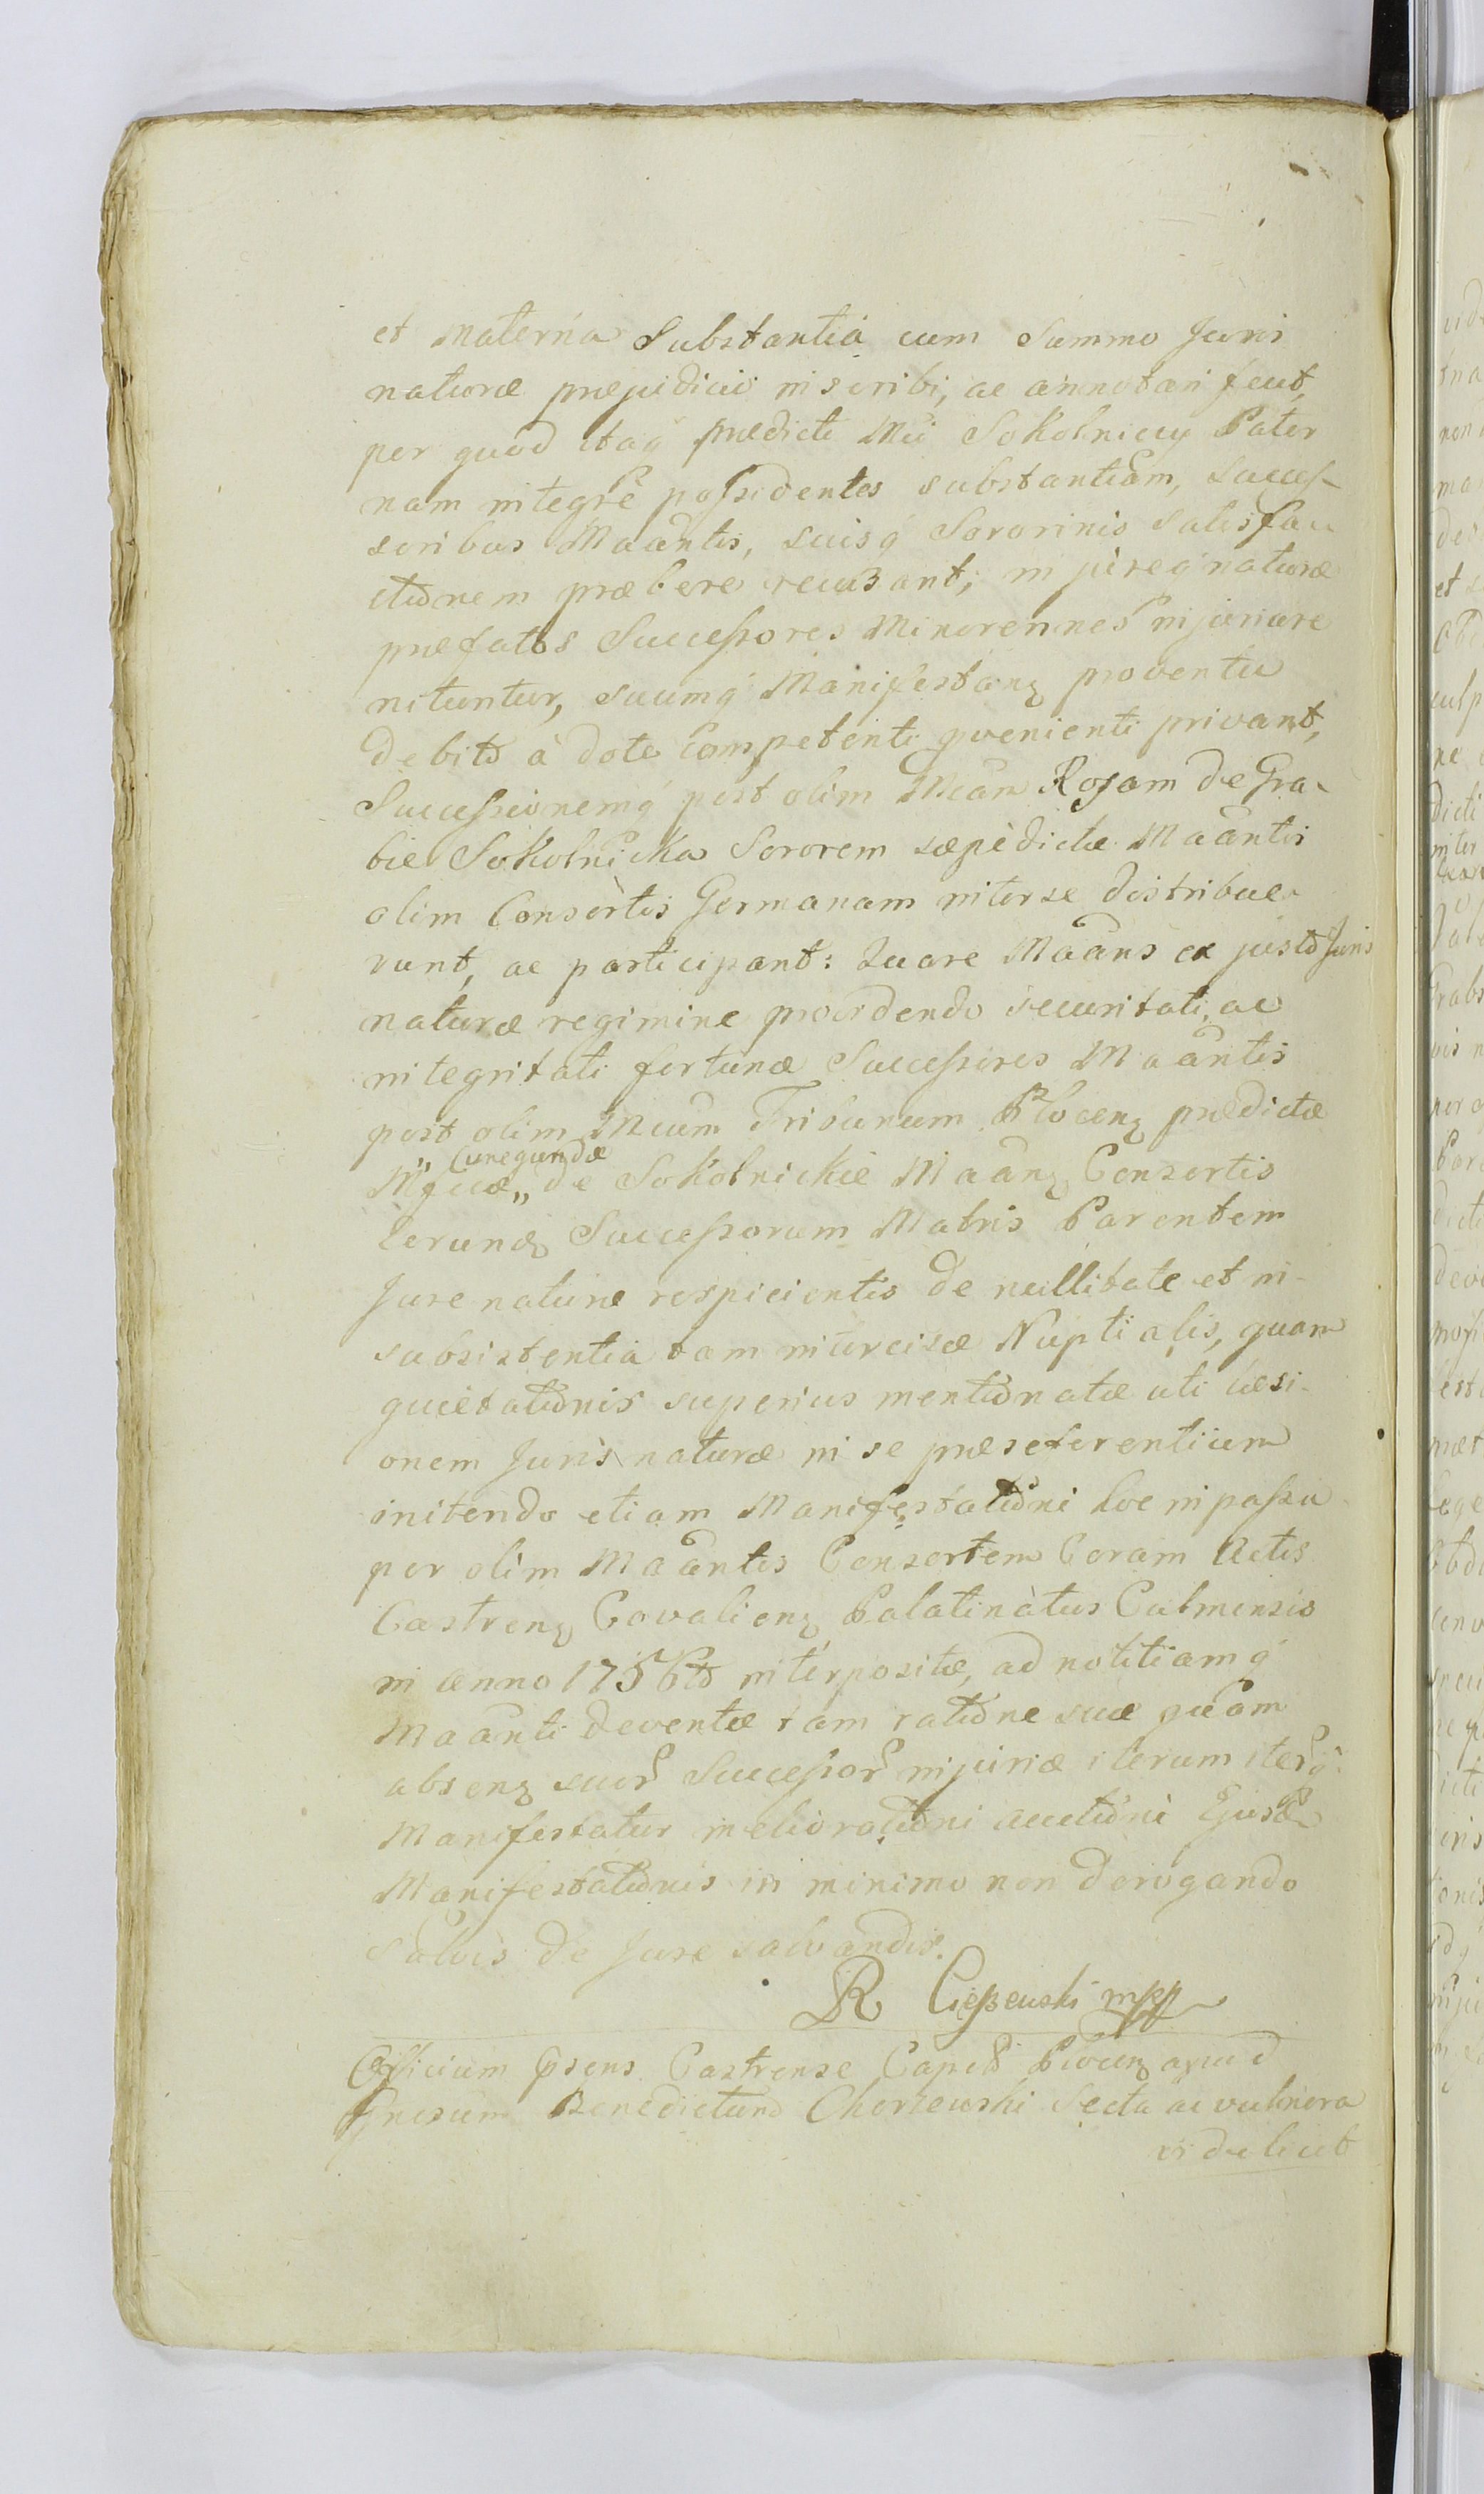 et Materna Substantiá cum Summo Juris
naturæ præjudicio inscribi, ac annotari fecit,
per quod itaq́ prædicti Mci Sokolniccy Pater
nam integrè possidentes substantiam, succes-
soribus Maantis, suisq́ Sororinis satisfac
tiõnem præbere recusant, in jureq́ naturæ
præfatos Successores Minorennes injuriare
nituntur, suumq́ Manifestanȝ proventu
debito à dote Competenti pvenienti privant,
Successionemq́ post olim Mcam Rosam de Gra-
bie Sokolnicka Sororem sæpèdictæ Maantis
olim Consortis Germanam inter se distribue-
runt, ac participant: Quare Maans ex justo Juris
naturæ regimine providendo securitati, ac
integritati fortunæ Successores Maantis
post olim Mcum Tribunum Plocenȝ prædictæ
Mgcæ „ Cunegundæ „ de Sokolnickie Maanȝ Consortis
eorunȝ Successorum Matris Parentem
Jure naturæ respicientis de nullitate et in-
subsistentia tam intercisæ Nuptialis, quam
quietatiõnis superius mentiõnatæ uti læsi-
onem Juris naturæ in se præseferentium
initendo etiam Manifestatiõni hoc in passu
per olim Maantis Consortem Coram Actis
Castrenȝ Covalienȝ Palatinàtus Culmensis
in anno 1756to interpositæ, ad notitiamq́
Maanti deventæ tam ratiõne suæ quam
absenȝ suor Successor injuriæ iterum iterq́
Manifestatur melioratiõni auctiõni Ejusd
Manifestatiõnis in minimo non derogando
salvis de Jure salvandis.
R Cieszewski mpp
Officium psens Castrense Capit Plocenȝ apud
Gnosum Benedictum Chorzewski Secta ac vulnera
vidulicet